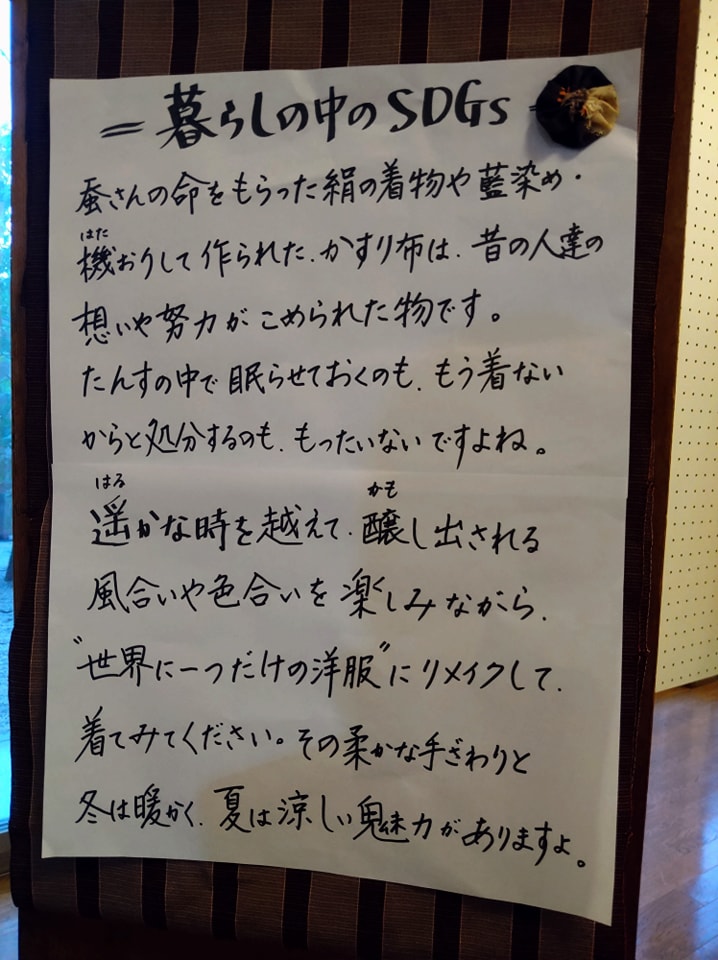 =暮らしの中のSDGs=
蚕さんの命をもらった絹の着物や藍染め・
はた
機おりして作られた、かすり布は、昔の人達の
想いや努力がこめられた物です。
たんすの中で眠らせておくのも、もう着ない
からと処分するのも、もったいないですよね。
はる かも
遥かな時を越えて、醸し出される
風合いや色合いを楽しみながら、
"世界に一つだけの洋服"にリメイクして、
着てみてください。その柔かな手ざわりと
冬は暖かく、夏は涼しい魅力がありますよ。